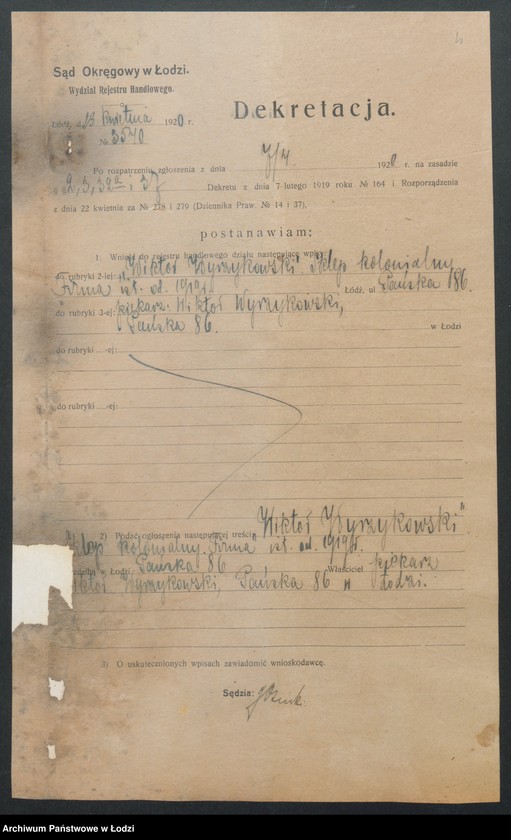 Sąd Okręgowy w Łodzi.
Wydział Rejestru Handlowego.
Dekretacja.
Łódź, d. 13 kwietnia 1920 r.
№ 3540
Po rozpatrzeniu zgłoszenia z dnia 7/4 1920 r. na zasadzie
2, 3, 37 Dekretu z dnia 7 lutego 1919 roku № 164 i Rozporządzenia
z dnia 22 kwietnia za № 278 i 279 (Dziennika Praw. № 14 i 37).
postanawiam:
1. Wnieść do rejestru handlowego działu następujące wpisy
do rubryki 2-iej: "Wiktor Wyrzykowski" Sklep kolonialny
Firma ist. od 1919 r. Łódź, ul. Pańska 86.
do rubryki 3-ej: piekarz Wiktor Wyrzykowski,
Pańska 86. w Łodzi
do rubryki -ej:
do rubryki -ej:
2) Podać ogłoszenia następującej treści: "Wiktor Wyrzykowski"
Sklep kolonialny. Firma ist. od 1919 r.
Łodzi, Pańska 86 Właściciel piekarz
Wiktor Wyrzykowski, Pańska 86 w Łodzi.
3) O uskutecznionych wpisach zawiadomić wnioskodawcę.
Sędzia:
Archiwum Państwowe w Łodzi